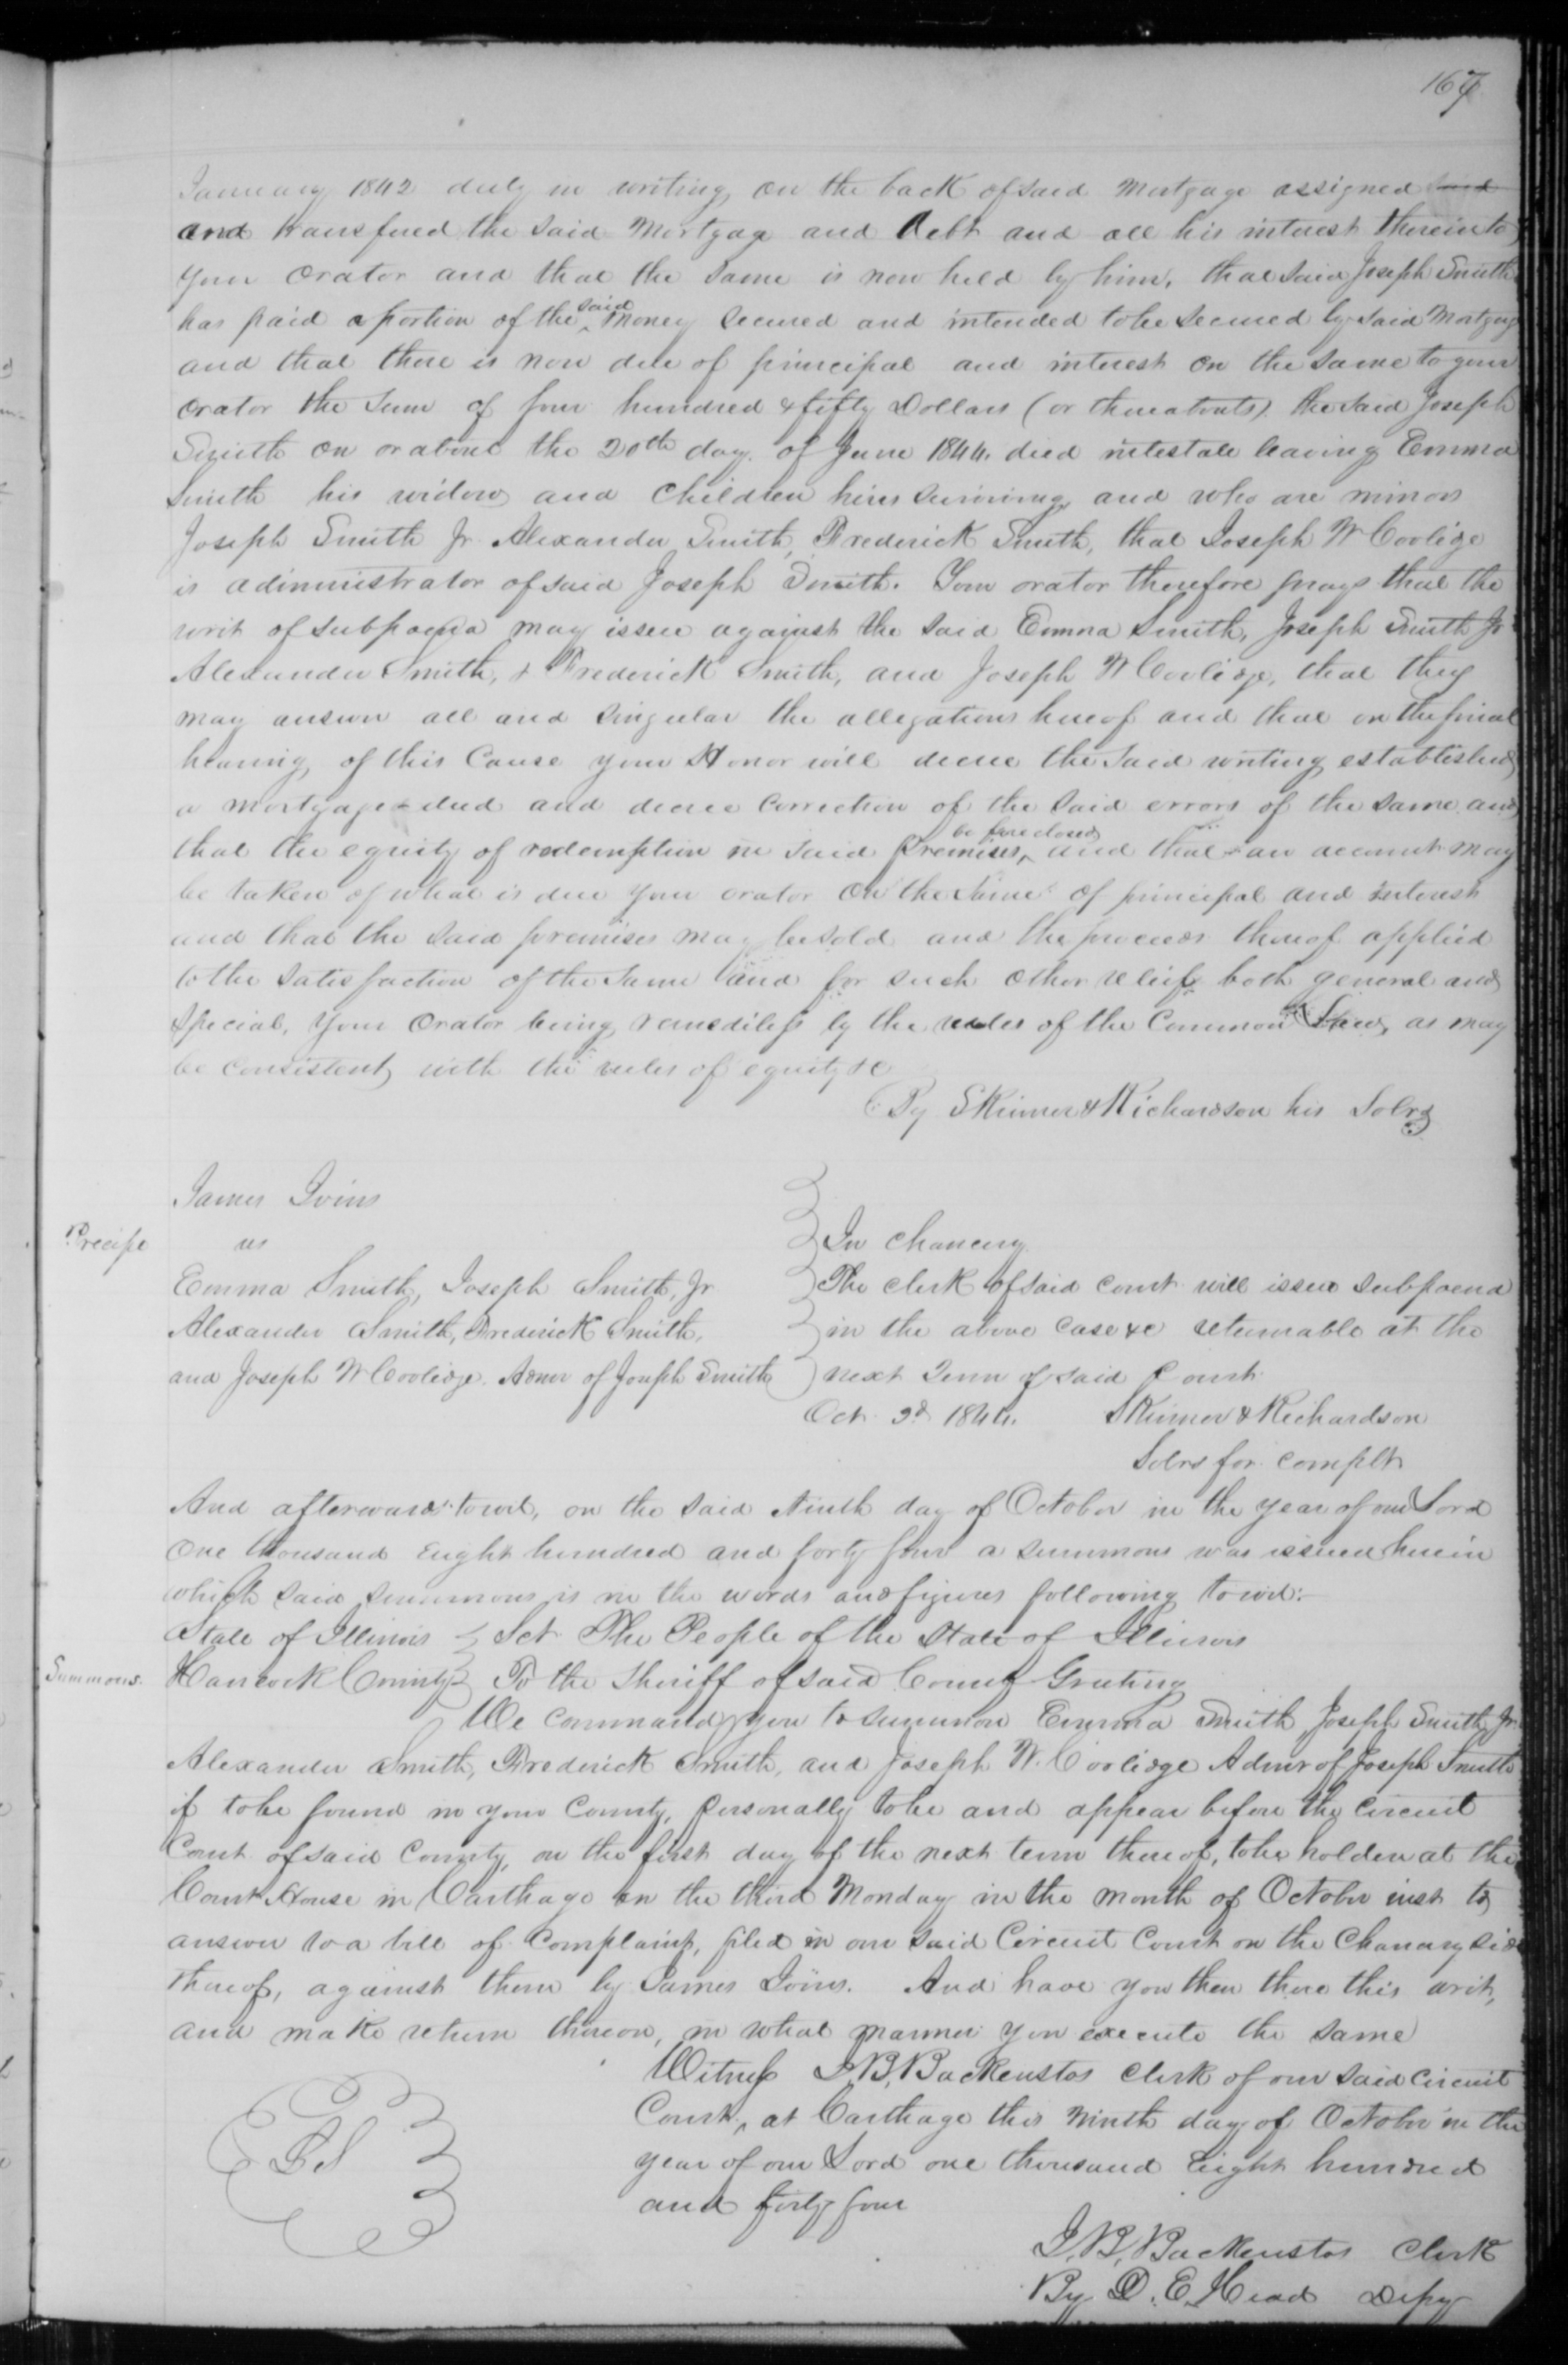 167
January 1842 duly in writing on the back of said Mortgage assigned said
and transfered the said Mortgage and Debt and all his interest therein to
your Orator and that the same is now held by him, that said Joseph Smith
has paid a portion of the said money secured and intended to be secured by said Mortgag
and that there is now due of principal and interest on the same to your
Orator the sum of four hundred & fifty Dollars (or thereabouts) the said Joseph
Smith on or about the 20th day of June 1844. died intestate leaving Emma
Smith his widow and Children heirs surviving and who are minors
Joseph Smith Jr. Alexander Smith, Frederick Smith, that Joseph W Coolidge
is administrator of said Joseph Smith. Your orator therefore prays that the
writ of subpoena may issue against the said Emma Smith, Joseph Smith Jr
Alexander Smith, & Frederick Smith, and Joseph W Coolidge, that they
may answer all and singular the allegations hereof and that on the final
hearing of this Cause your Honor will decree the said writing established
a mortgage deed and decree Correction of the said errors of the same and
that the equity of redemption in said premises be foreclosed and that an account may
be taken of what is due your orator on the same of principal and interest
and that the said premises may be sold and the proceeds thereof applied
to the satisfaction of the same and for such other relief both general and
special, your Orator being remediless by the rules of the Common Law, as may
be consistent with the rules of equity &c
By Skinner & Richardson his Solrs
James Ivins
Precipe vs In Chancery
Emma Smith, Joseph Smith, Jr The clerk of said court will issue subpoena
Alexander Smith, Frederick Smith, in the above case &c returnable at the
and Joseph W Coolidge. Admr of Joseph Smith next Term of said Court
Oct 1844. Skinner & Richardson
Solrs for complt
And afterwards towit, on the said Ninth day of October in the year of our Lord
One thousand Eight hundred and forty four a summons was issued herein
which said summons is in the words and figures following towit:
State of Illinois Sct The People of the State of Illinois
Summons. Hancock County To the Sheriff of said County Greeting
We command you to summon Emma Smith Joseph Smith Jr.
Alexander Smith, Frederick Smith, and Joseph W. Coolidge Admr of Joseph Smith
if to be found in your County, personally to be and appear before the Circuit
Court of said County, on the first day of the next term thereof, to be holden at the
Court House in Carthage on the third Monday in the month of October inst to
answer to a bill of Complaint, filed in our said Circuit Court on the Chancery side
thereof, against them by James Ivins. And have you then there this writ,
and make return thereon, in what manner you execute the same
Witness J.B. Backenstos Clerk of our said Circuit
Court, at Carthage this Ninth day of October in the
year of our Lord one thousand Eight hundred
LS
and forty four
J.B. Backenstos Clerk
By D. E. Head Depy